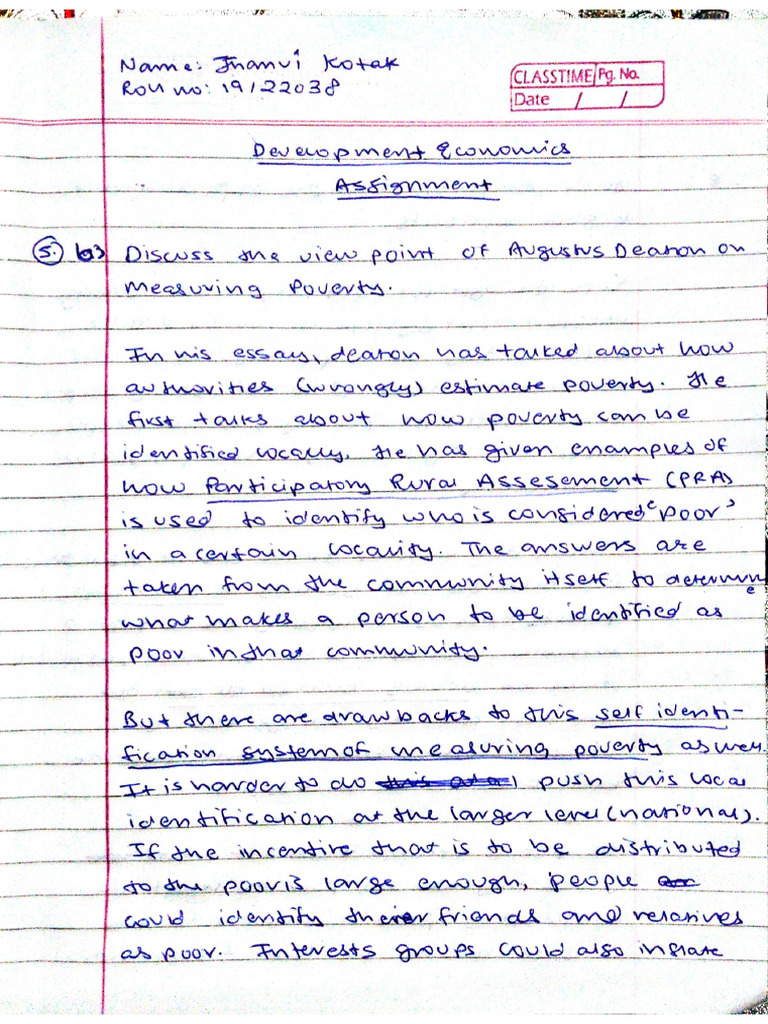 Name: Jhanvi Kotak
Roll no: 19/22038
CLASSTIME Pg. No.
Date / /
Development Economics
Assignment
5. b) Discuss the view point of Augustus Deaton on
measuring Poverty.
In his essay, deaton has talked about how
authorities (wrongly) estimate poverty. He
first talks about how poverty can be
identified locally. He has given examples of
how Participatory Rural Assesement (PRA)
is used to identify who is considered 'poor'
in a certain locality. The answers are
taken from the community itself to determine
what makes a person to be identified as
poor in that community.
But there are drawbacks to this self identi-
fication system of measuring poverty as well.
It is harder to do push this local
identification at the larger level (national).
If the incentive that is to be distributed
to the poor is large enough, people
could identify their friends and relatives
as poor. Interests groups could also inflate